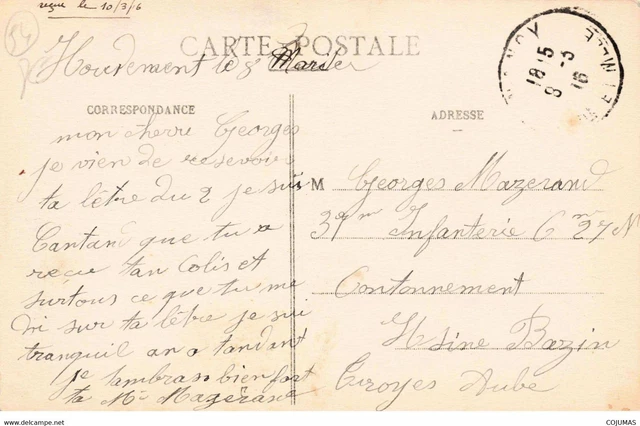 reçue le 10/3/6
54
CARTE POSTALE
Houdemont le 8 Mars
CORRESPONDANCE
mon cherre Georges
je vien de resevoir
ta lêtre du 2 je suis
Contan que tu a
reçu ton Colis et
surtous ce que tu me
di sur ta lêtre je sui
tranquil an atandant
je tambrass bien fort
ta M Mazerand
ADRESSE
M Georges Mazerand
37 Infanterie C 27
Contonnement
Usine Bazin
Troyes Aube
18 15
8 3
16
www.delcampe.net
COJUMAS